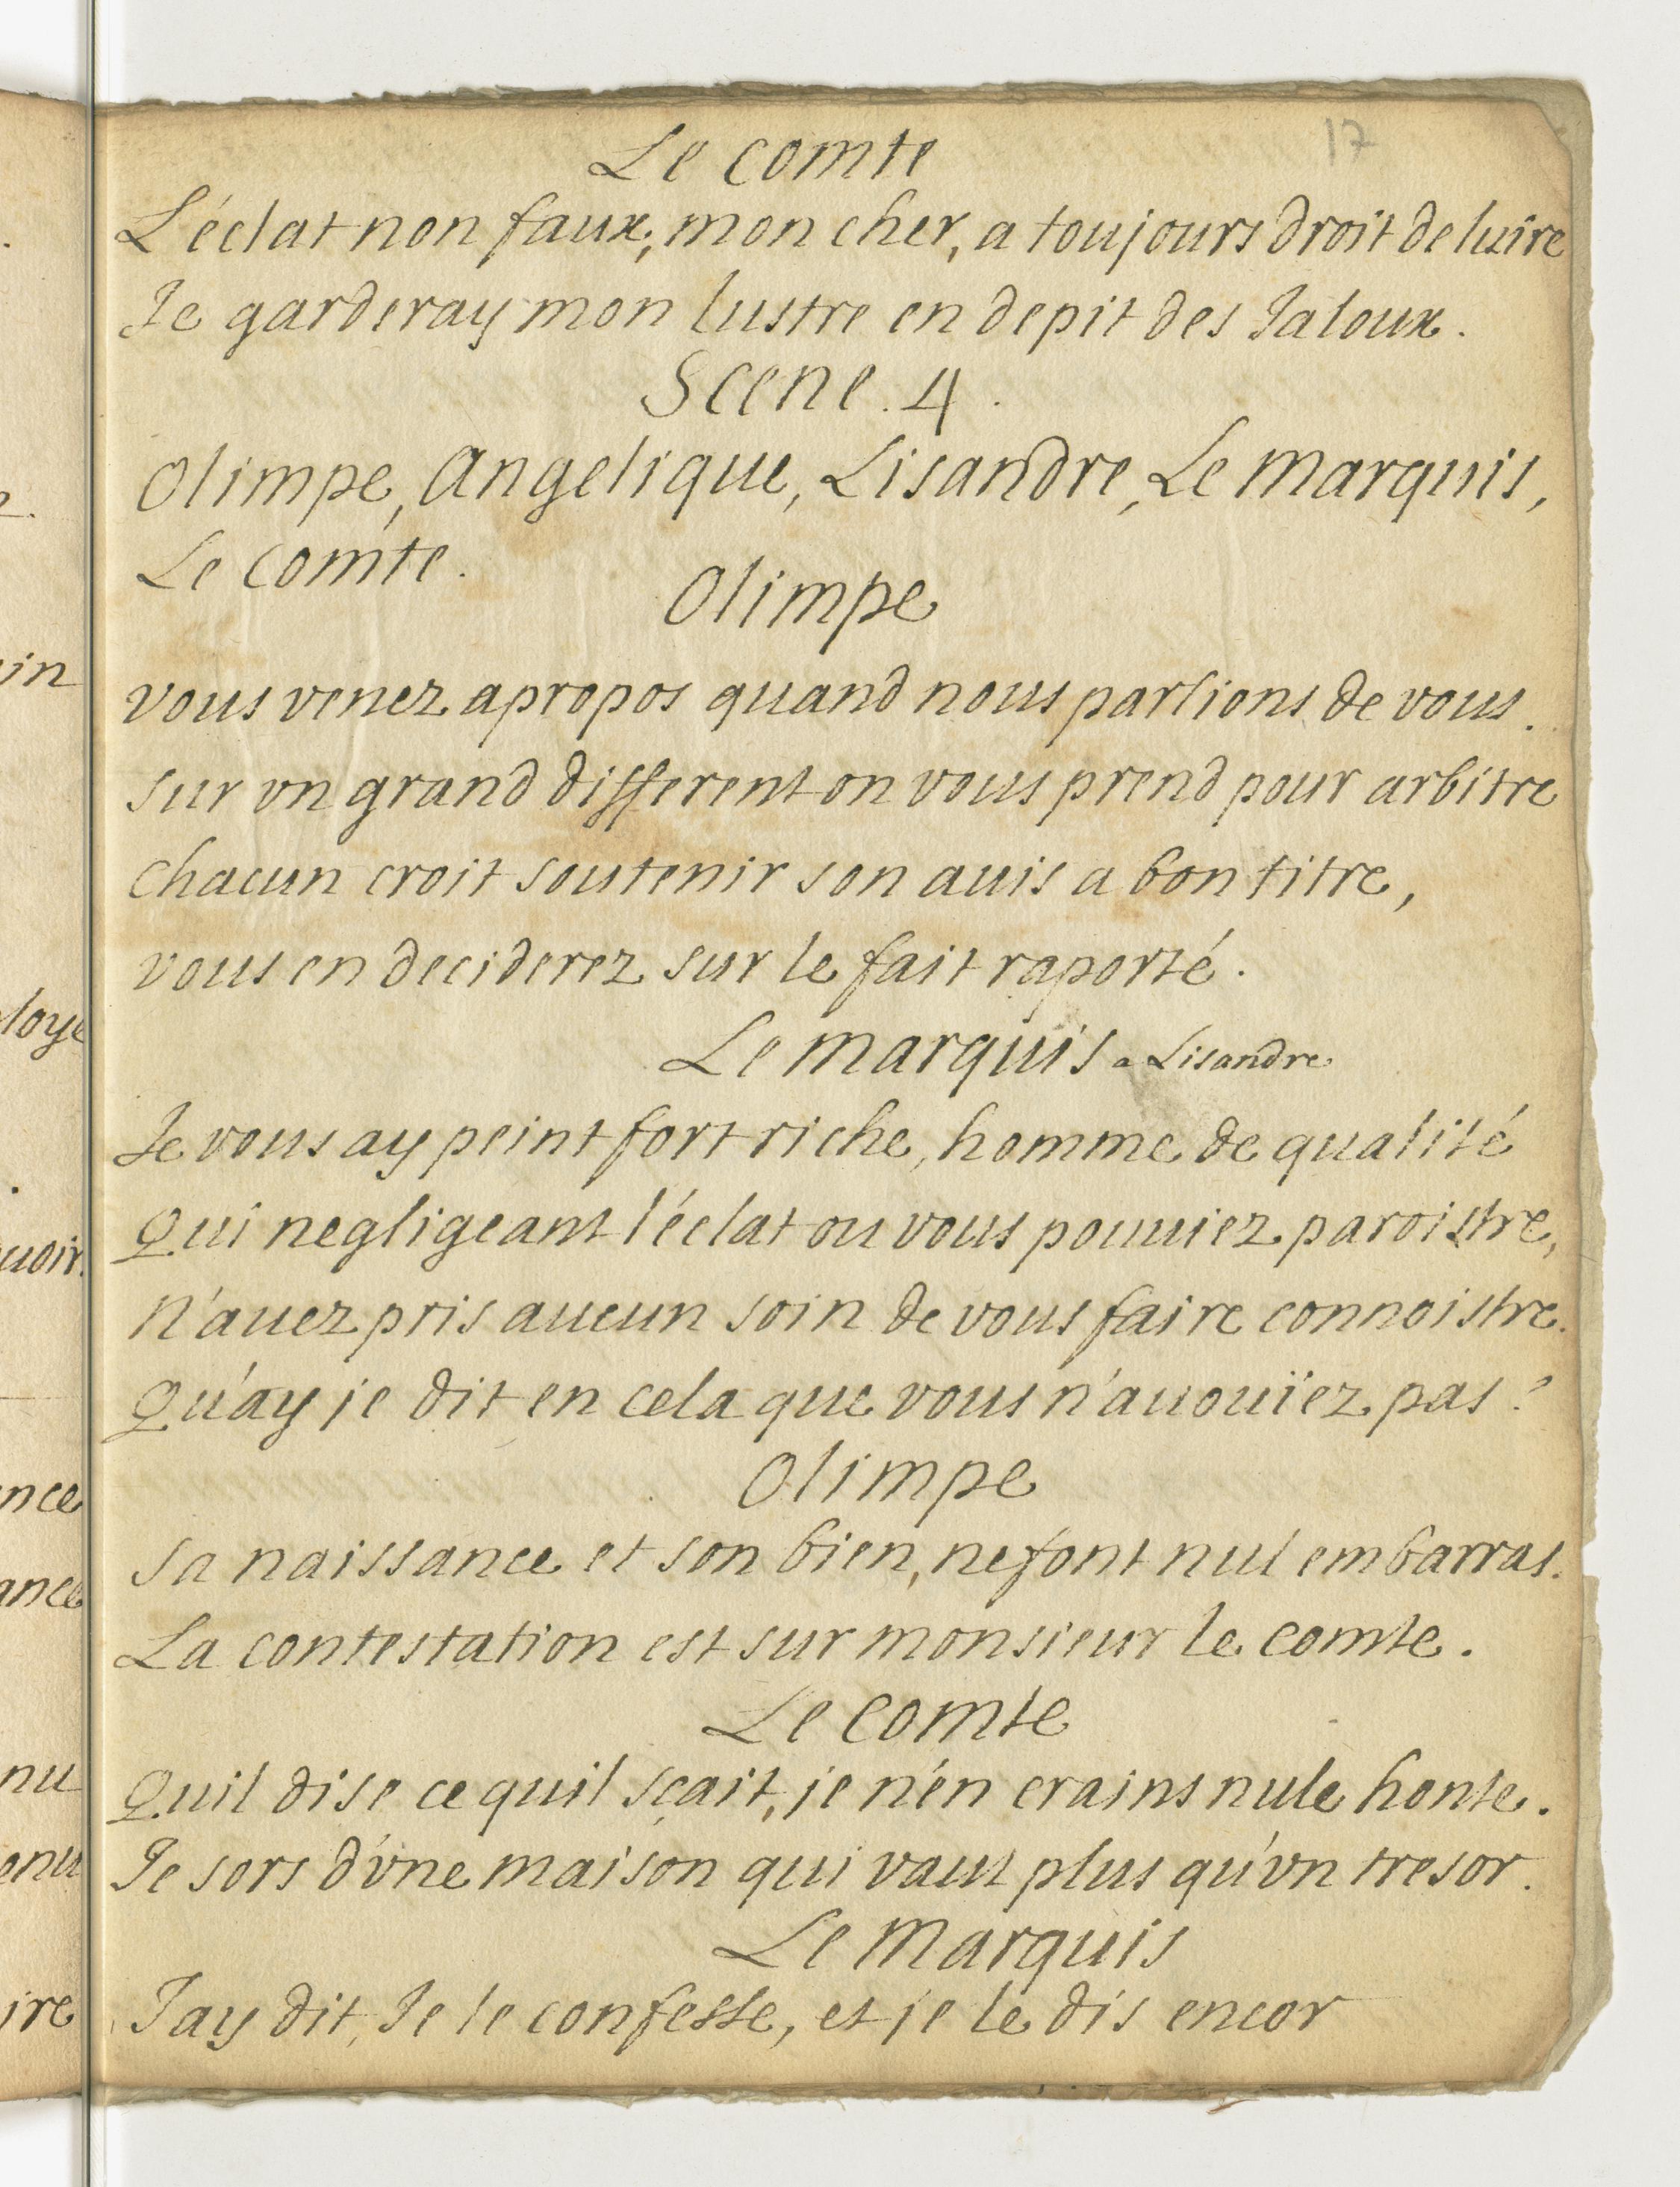 17
Le comte
L'éclat non faux, mon cher, a toujours droit de luire
Je garderay mon lustre en depit des Jaloux.
Scene. 4.
Olimpe, Angelique, Lisandre, Le Marquis,
Le comte.
Olimpe
vous venez apropos quand nous parlions de vous.
sur vn grand different on vous prend pour arbitre
chacun croit soutenir son auis a bon titre,
vous en deciderez sur le fait raporté.
Le Marquis a Lisandre
Je vous ay peint fort riche, homme de qualité
Qui negligeant l'éclat ou vous pouuiez paroistre,
N'auez pris aucun soin de vous faire connoistre.
Qu'ay je dit en cela que vous n'auouïez pas?
Olimpe
sa naissance et son bien, ne font nul embarras.
La contestation est sur monsieur le comte.
Le comte
Quil dise ce quil sçait, je n'en crains nule honte.
Je sors d'vne maison qui vaut plus qu'vn tresor.
Le Marquis
J'ay dit, Je le confesse, et je le dis encor
in
loye
uoir.
nce
ance
nu
enu
ire